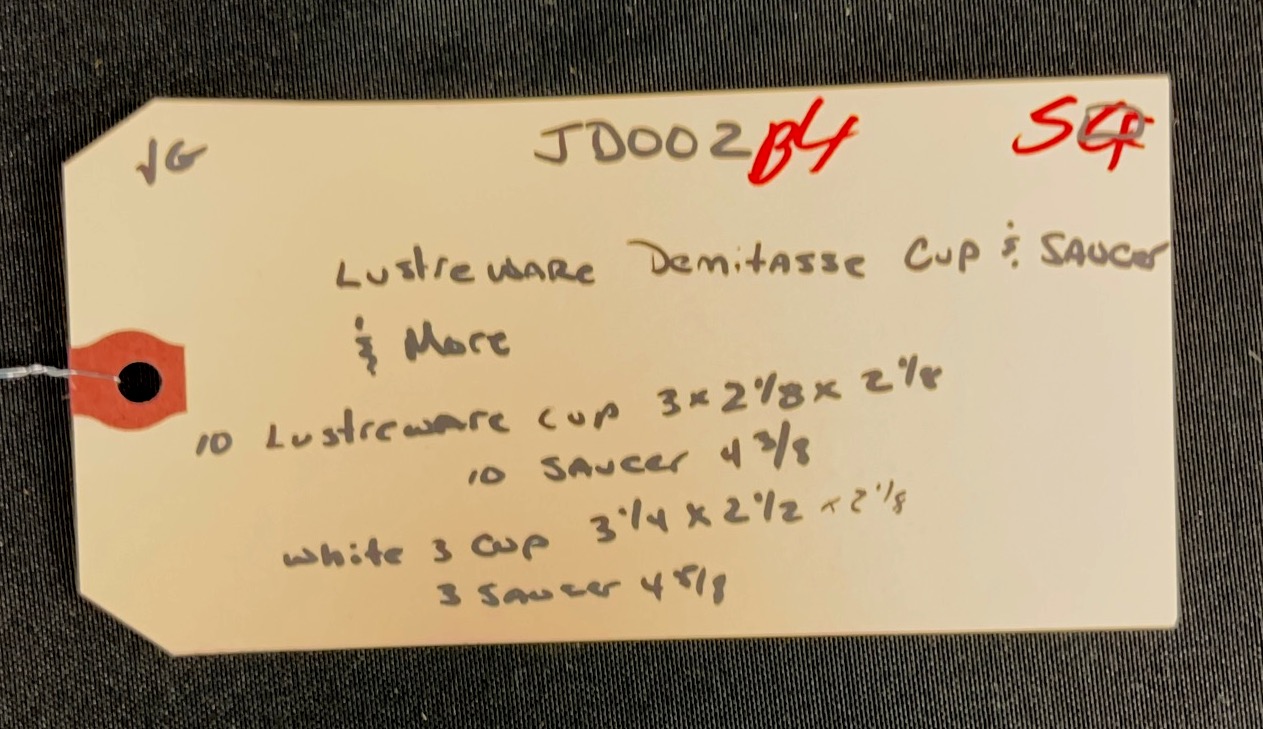 VG JD002 B4
Lustreware Demitasse Cup & Saucer
& More
10 Lustreware cup 3 x 2 1/8 x 2 1/8
10 Saucer 4 3/8
white 3 cup 3 1/4 x 2 1/2 x 2 1/8
3 Saucer 4 5/8